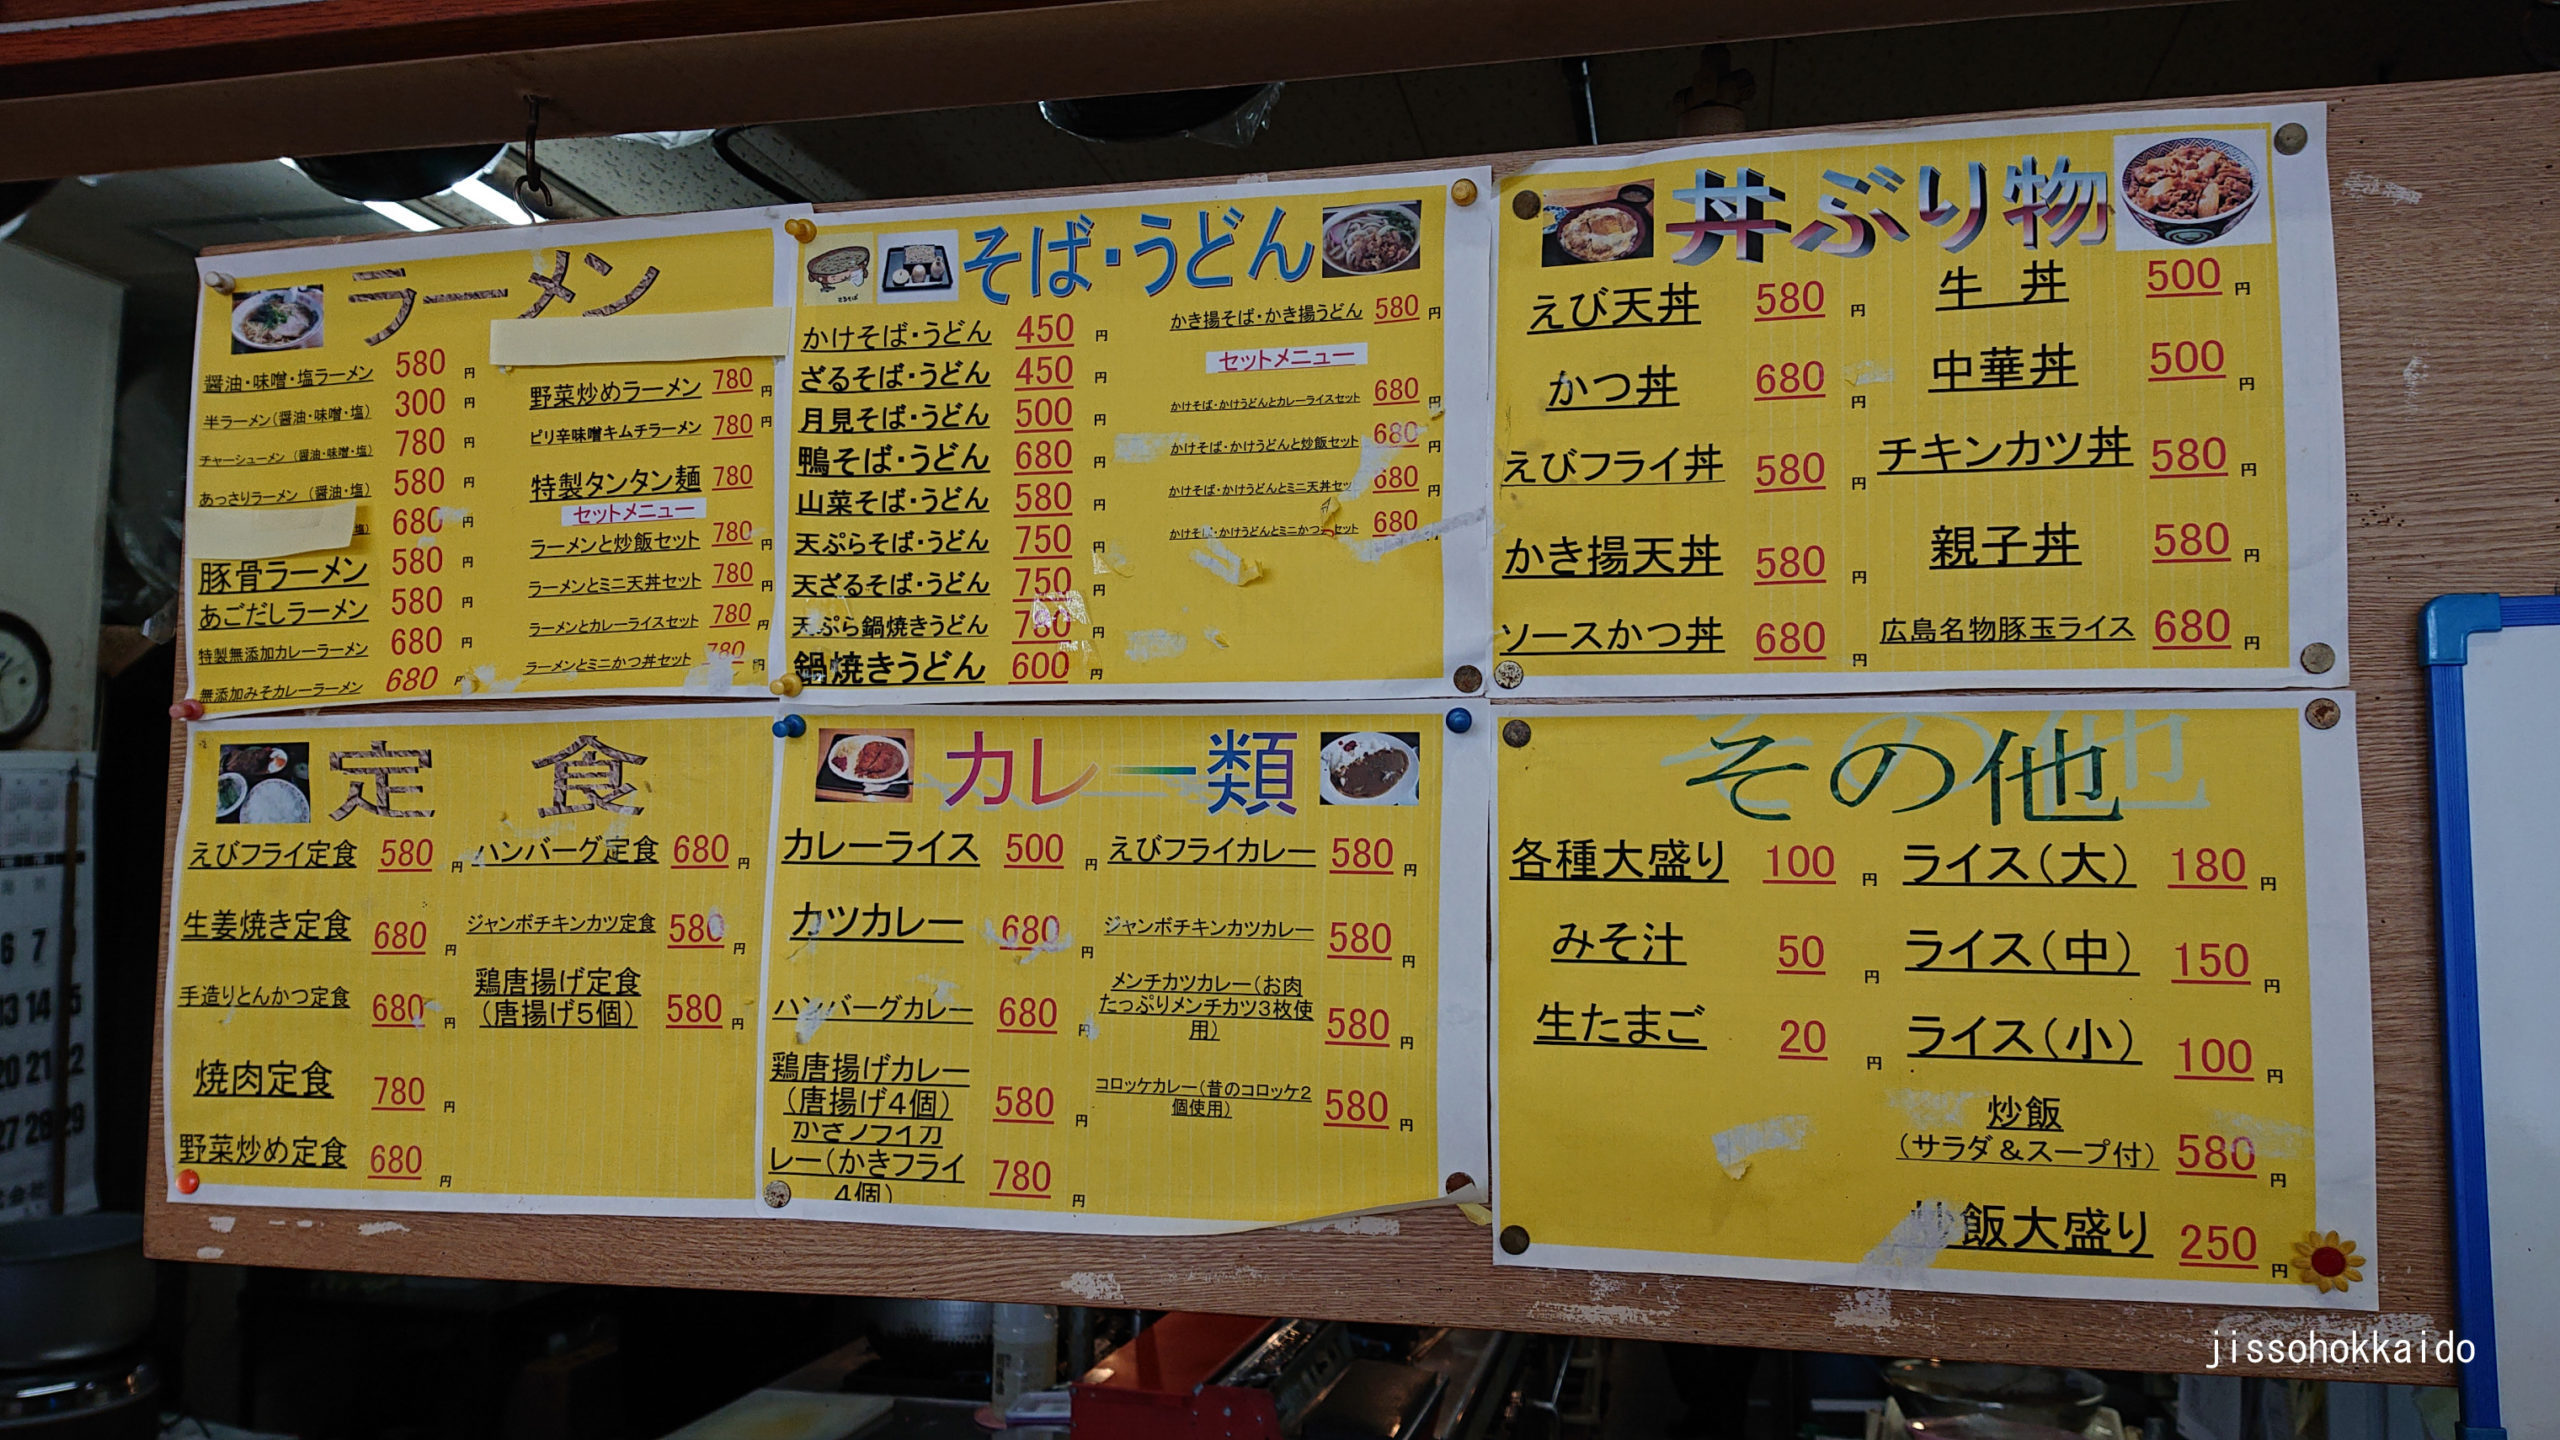 ラーメン
醤油・味噌・塩ラーメン 580 円
半ラーメン(醤油・味噌・塩) 300 円
チャーシューメン (醤油・味噌・塩) 780 円
あっさりラーメン (醤油・塩) 580 円
塩) 680 円
豚骨ラーメン 580 円
あごだしラーメン 580 円
特製無添加カレーラーメン 680 円
無添加みそカレーラーメン 680 円
野菜炒めラーメン 780 円
ピリ辛味噌キムチラーメン 780 円
特製タンタン麺 780
セットメニュー
ラーメンと炒飯セット 780 円
ラーメンとミニ天丼セット 780 円
ラーメンとカレーライスセット 780 円
ラーメンとミニかつ丼セット 780 円
そば・うどん
ざるそば
かけそば・うどん 450 円
ざるそば・うどん 450 円
月見そば・うどん 500 円
鴨そば・うどん 680 円
山菜そば・うどん 580 円
天ぷらそば・うどん 750 円
天ざるそば・うどん 750 円
天ぷら鍋焼きうどん 780 円
鍋焼きうどん 600 円
かき揚そば・かき揚うどん 580 円
セットメニュー
かけそば・かけうどんとカレーライスセット 680 円
かけそば・かけうどんと炒飯セット 680 円
かけそば・かけうどんとミニ天丼セッ 680 円
かけそば・かけうどんとミニかつ セット 680 円
丼ぶり物
えび天丼 580 円
かつ丼 680 円
えびフライ丼 580 円
かき揚天丼 580 円
ソースかつ丼 680 円
牛 丼 500 円
中華丼 500 円
チキンカツ丼 580 円
親子丼 580 円
広島名物豚玉ライス 680 円
定 食
えびフライ定食 580 円
生姜焼き定食 680 円
手造りとんかつ定食 680 円
焼肉定食 780 円
野菜炒め定食 680 円
ハンバーグ定食 680 円
ジャンボチキンカツ定食 580 円
鶏唐揚げ定食
(唐揚げ5個) 580 円
カレー類
カレーライス 500 円
カツカレー 680 円
ハンバーグカレー 680 円
鶏唐揚げカレー
(唐揚げ4個) 580 円
かきフライカ
レー(かきフライ 780 円
4個)
えびフライカレー 580 円
ジャンボチキンカツカレー 580 円
メンチカツカレー(お肉
たっぷりメンチカツ3枚使
用) 580 円
コロッケカレー(昔のコロッケ2
個使用) 580 円
その他
各種大盛り 100 円
みそ汁 50 円
生たまご 20 円
ライス(大) 180 円
ライス(中) 150 円
ライス(小) 100 円
炒飯
(サラダ&スープ付) 580 円
飯大盛り 250 円
6 7
13 14 15
20 21 22
27 28 29
jissohokkaido